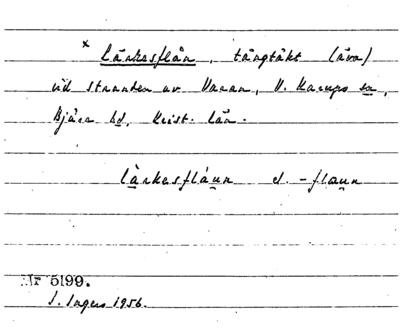 x Lärkesflån, tångtäkt (äva)
vid stranden av Varan, V. Karups sn,
Bjäre hd, Krist. län.
lärkesflåun el. -flaun
Nr 5199.
I. Ingers 1956.